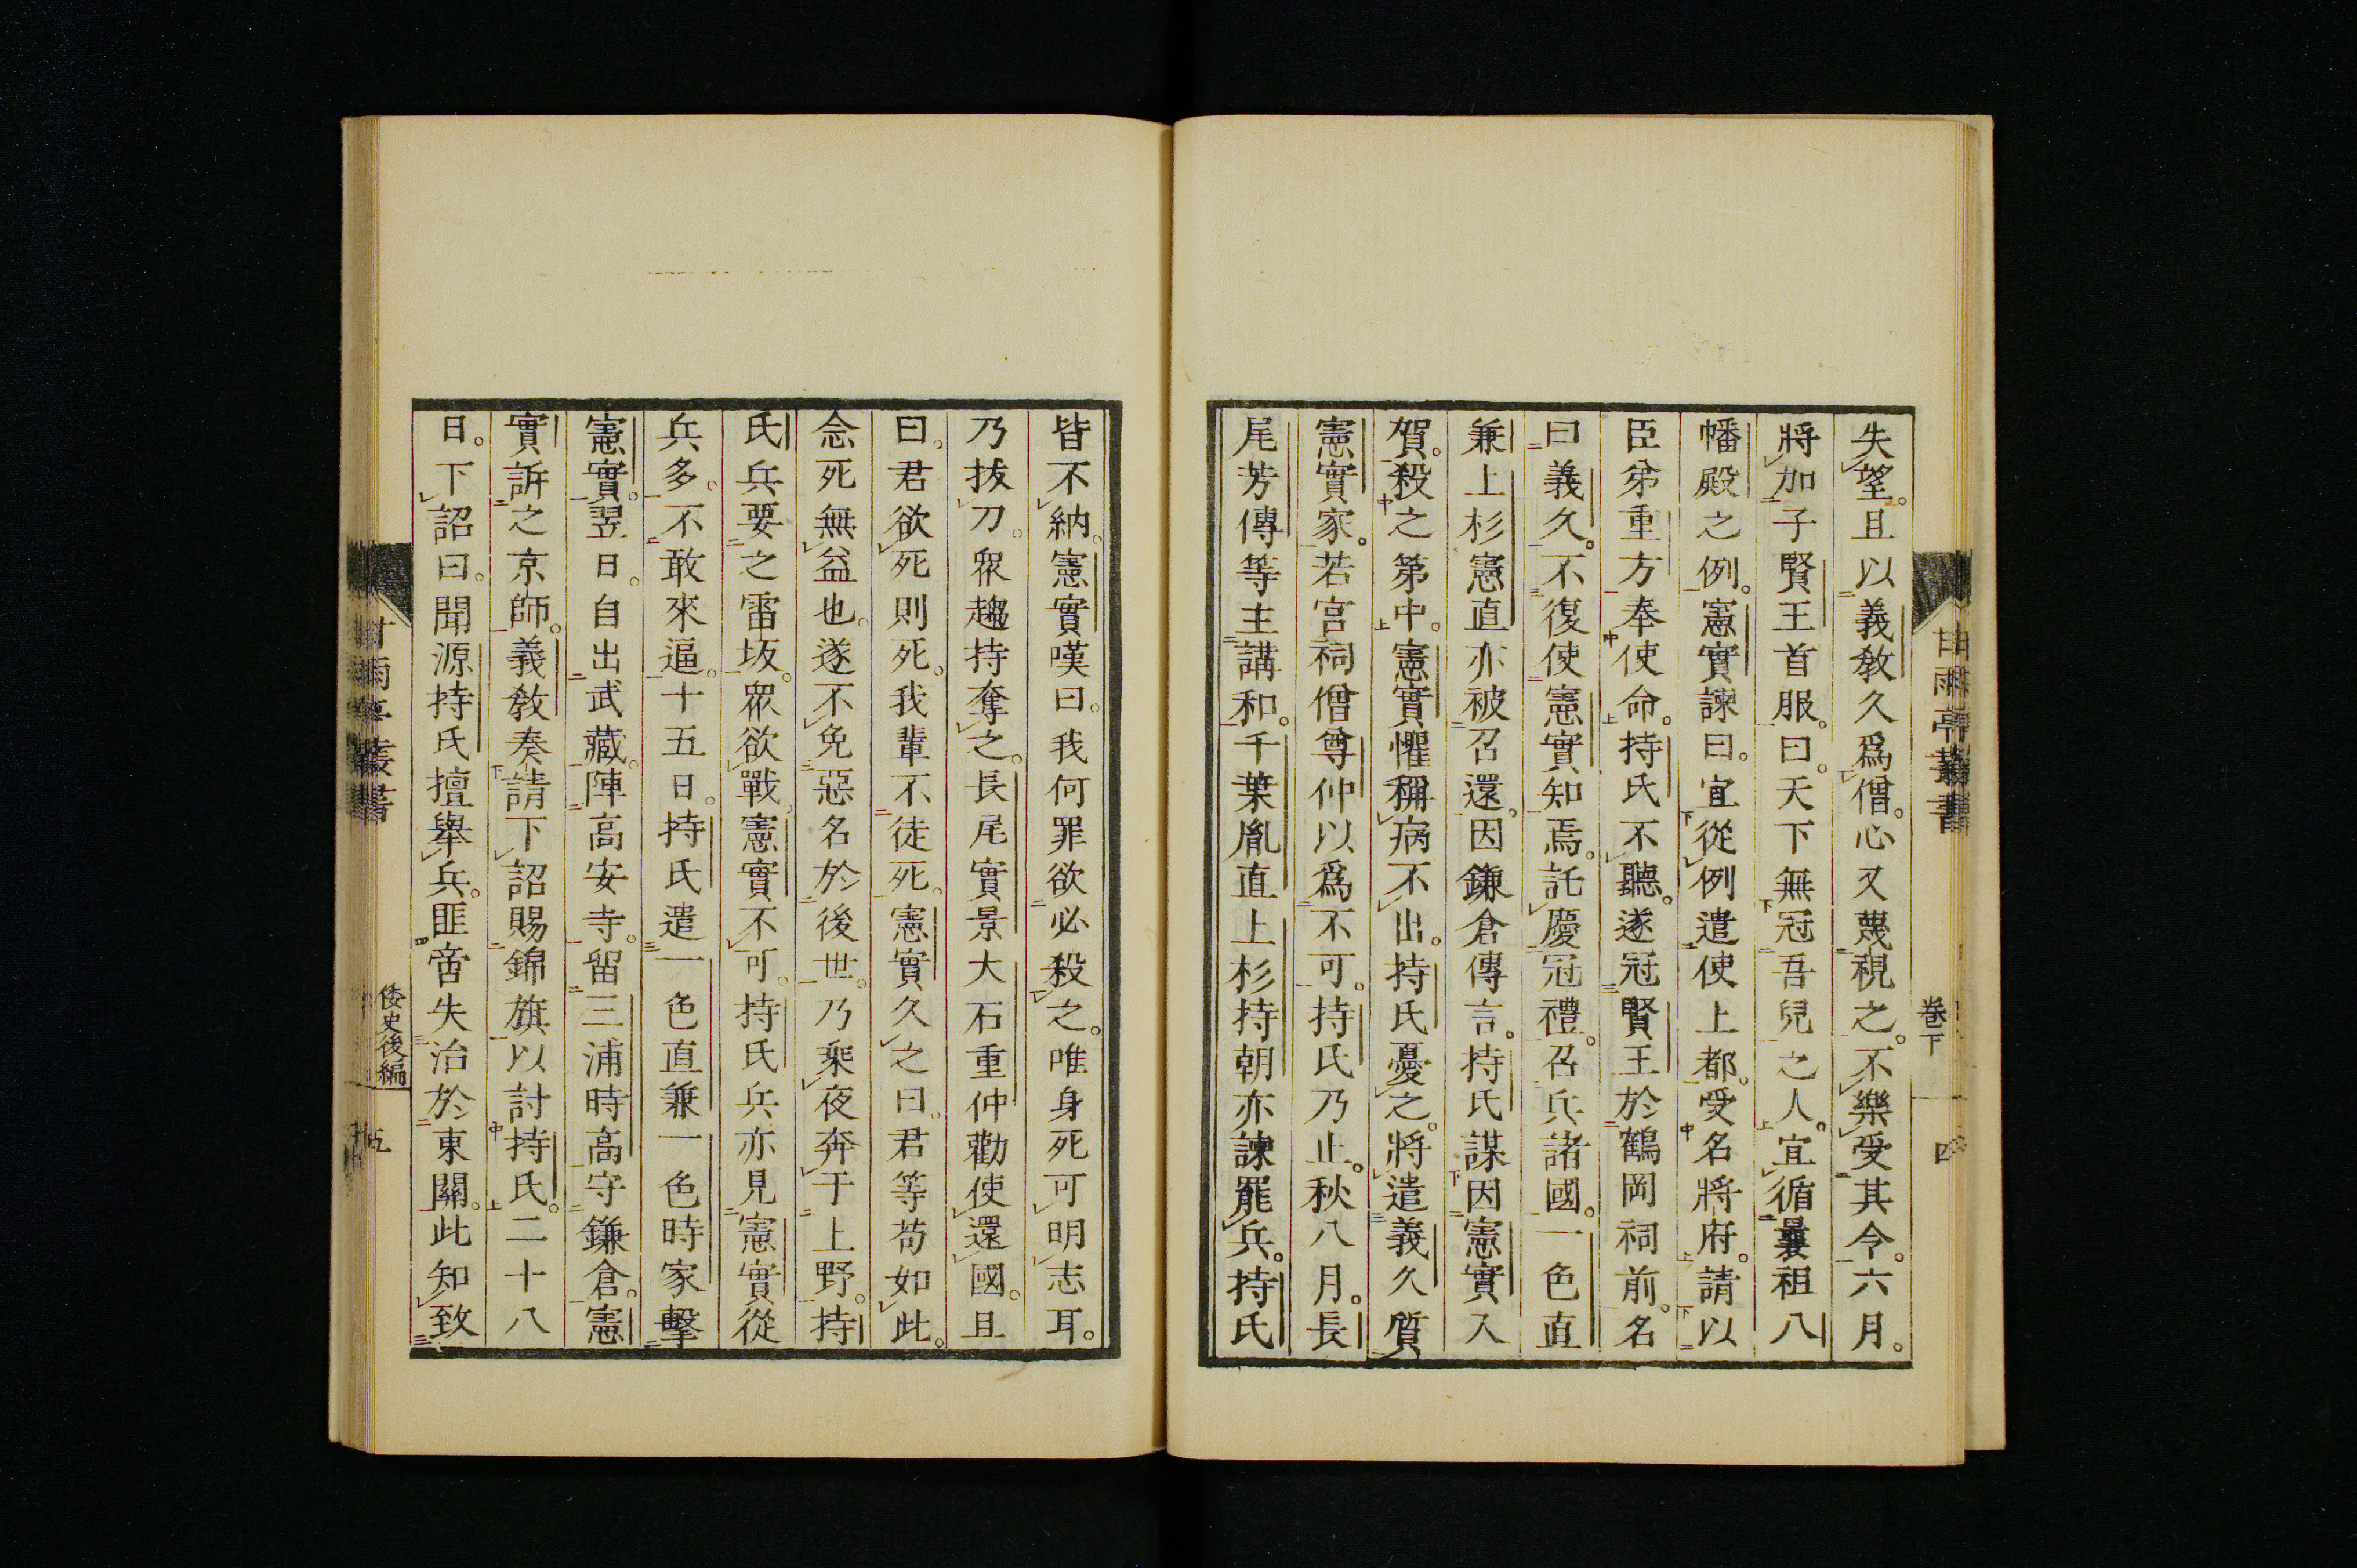 失望。且以義敎久爲僧。心又蔑視之。不樂受其令。六月。
將加子賢王首服。曰。天下無冠吾兒之人。宜循曩祖八
幡殿之例。憲實諫曰。宜從例遣使上都。受名將府。請以
臣弟重方奉使命。持氏不聽。遂冠賢王於鶴岡祠前。名
曰義久。不復使憲實知焉。託慶冠禮。召兵諸國。一色直
兼上杉憲直亦被召還。因鎌倉傳言。持氏謀因憲實入
賀。殺之第中。憲實懼稱病不出。持氏憂之。將遣義久質
憲實家。若宮祠僧尊仲以爲不可。持氏乃止。秋八月。長
尾芳傳等主講和。千葉胤直上杉持朝亦諫罷兵。持氏
甘雨亭叢書
卷下
四
皆不納。憲實嘆曰。我何罪欲必殺之。唯身死可明志耳。
乃拔刀。衆趨持奪之。長尾實景大石重仲勸使還國。且
曰。君欲死則死。我輩不徒死。憲實久之曰。君等苟如此。
念死無益也。遂不免惡名於後世。乃乘夜奔于上野。持
氏兵要之雷坂。衆欲戰。憲實不可。持氏兵亦見憲實從
兵多。不敢來逼。十五日。持氏遣一色直兼一色時家擊
憲實。翌日。自出武藏。陣高安寺。留三浦時高守鎌倉。憲
實訴之京師。義敎奏請下詔賜錦旗以討持氏。二十八
日。下詔曰。聞源持氏擅舉兵。匪啻失治於東關。此知致
甘雨亭叢書
倭史後編
五